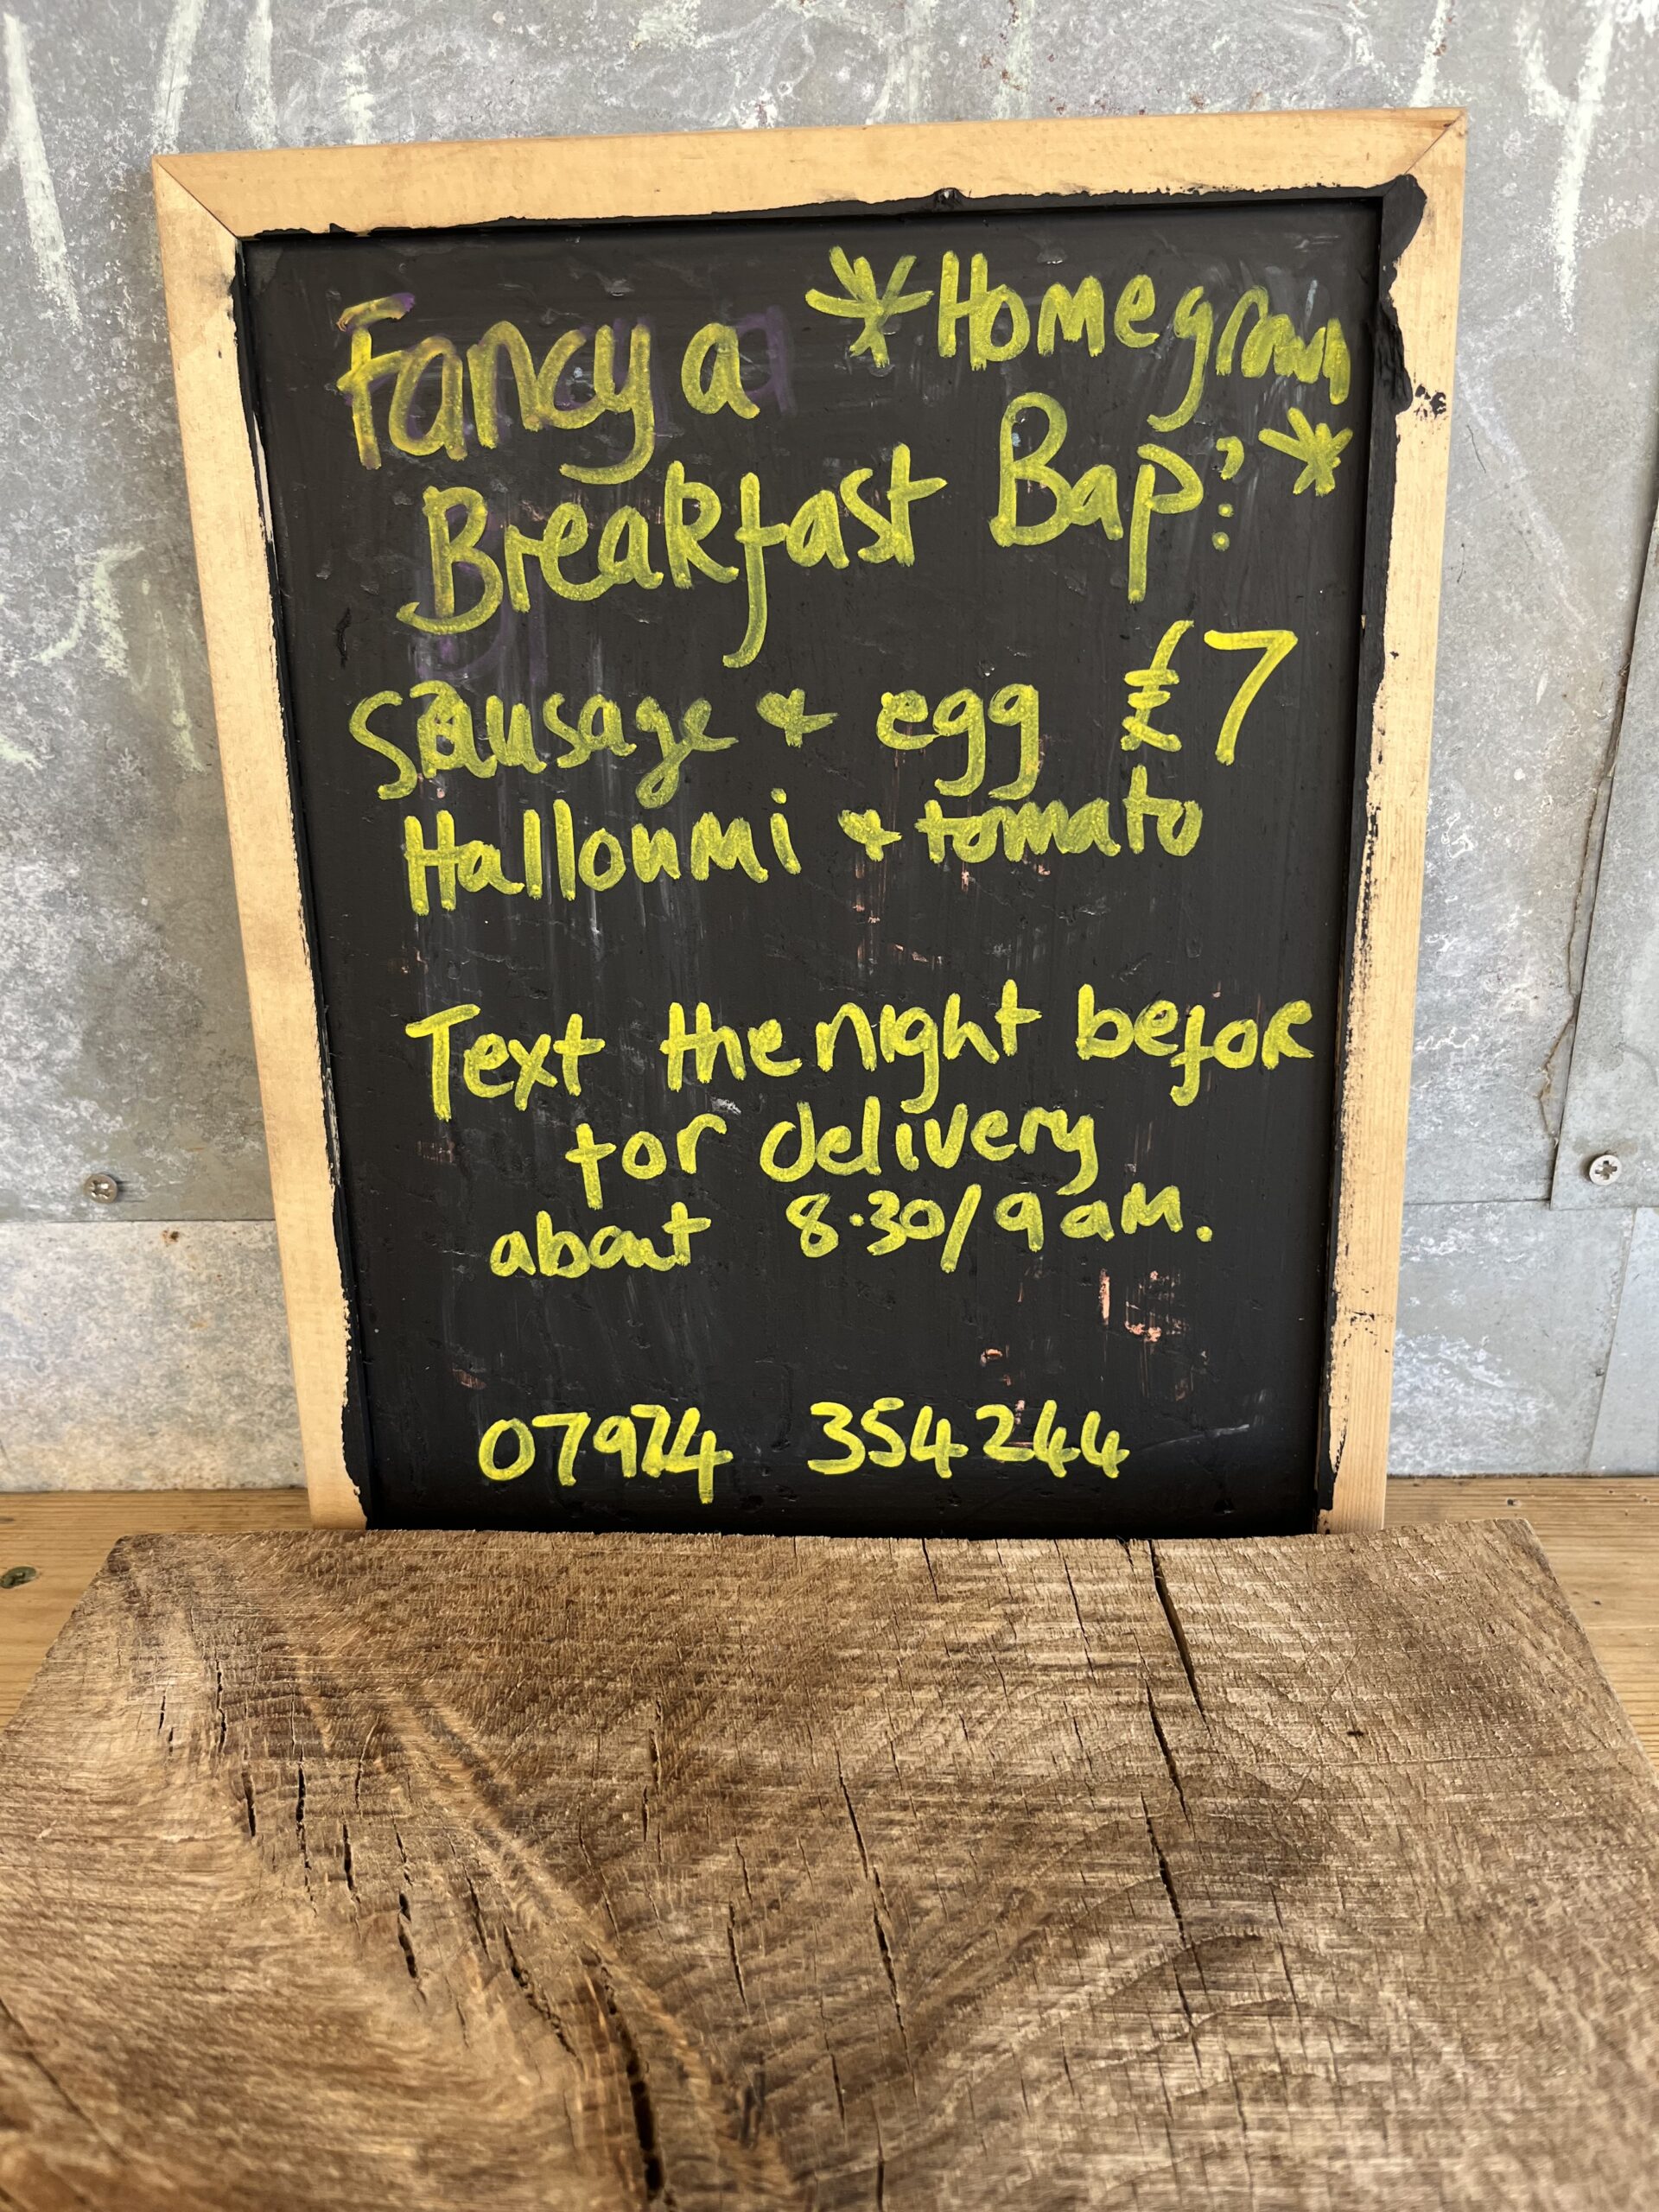 Fancy a *Homegrown
Breakfast Bap? *
Sausage + egg £7
Halloumi + tomato
Text the night before
for delivery
about 8.30/9am.
354244